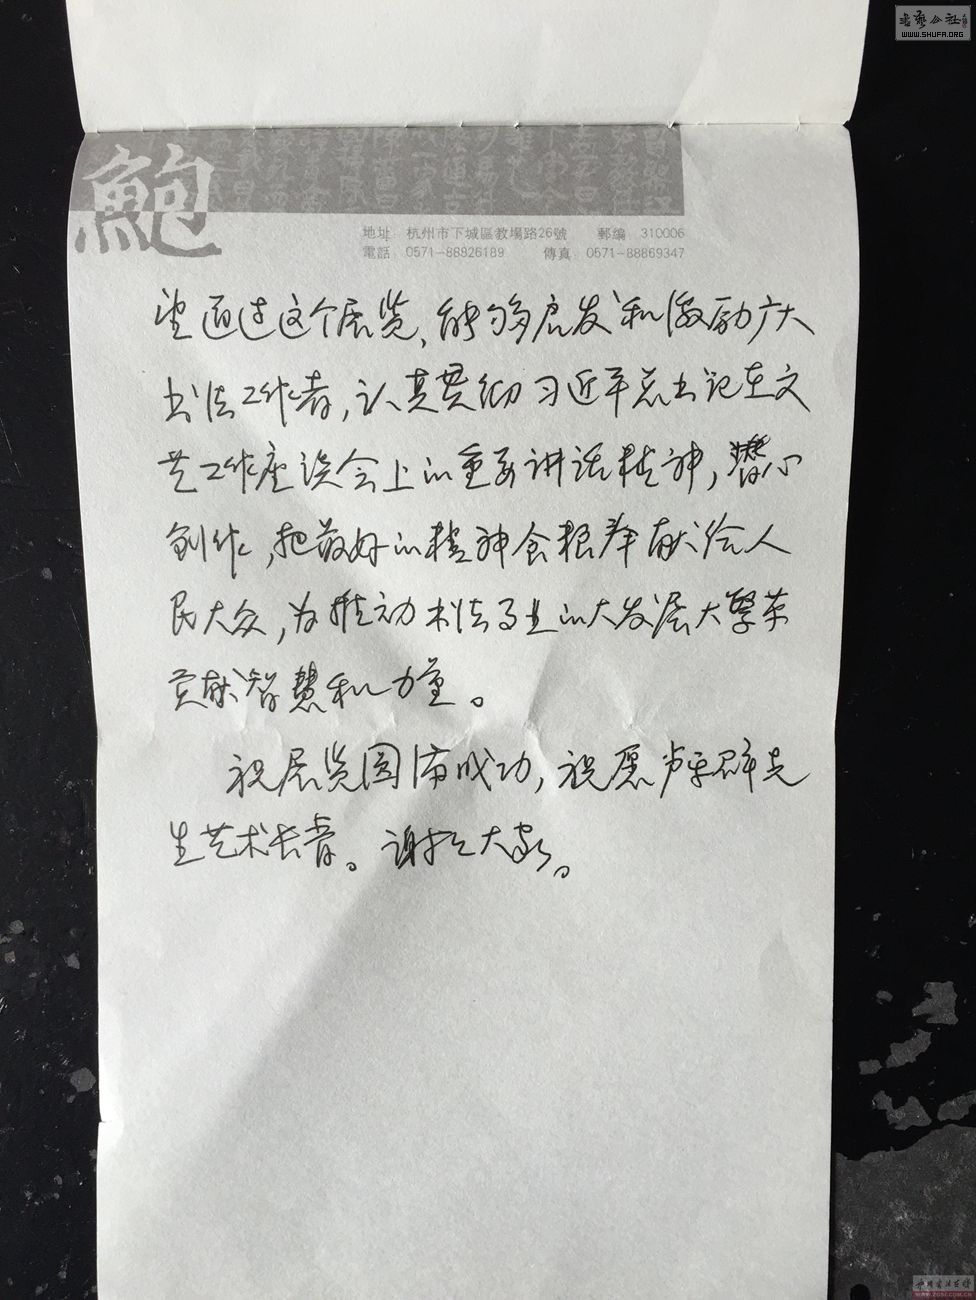 书艺公社
WWW.SHUFA.ORG
鮑
地址 杭州市下城區教場路26號 郵編 310006
電話 0571-88826189 傳真 0571-88869347
望通过这个展览，能够启发和激励广大
书法工作者，认真贯彻习近平总书记在文
艺工作座谈会上的重要讲话精神，潜心
创作，把最好的精神食粮奉献给人
民大众，为推动书法事业的大发展大繁荣
贡献智慧和力量。
祝展览圆满成功，祝愿卢平群先
生艺术长青。谢谢大家。
WWW.ZGSF.COM.CN